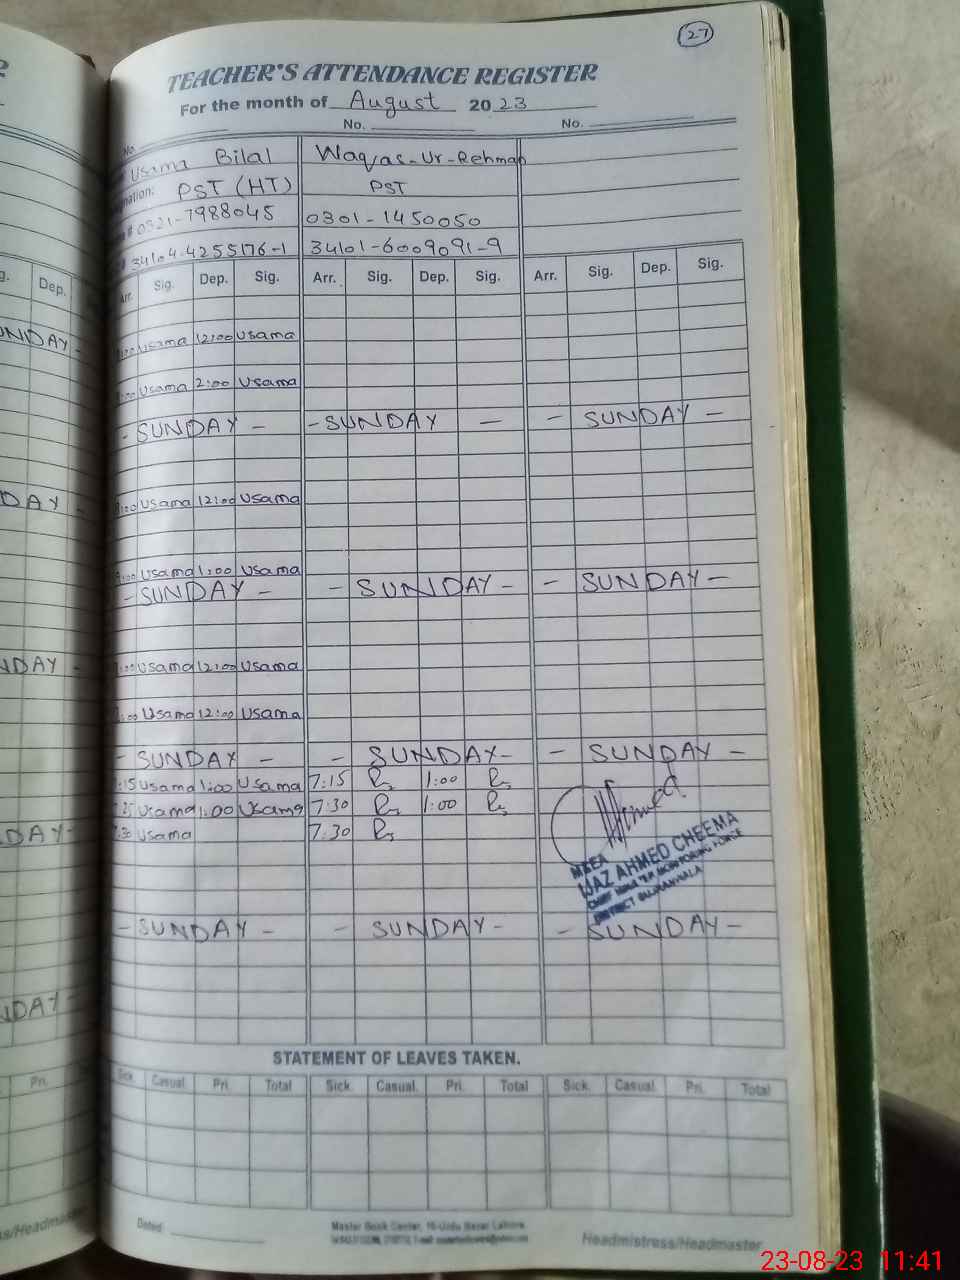 27
TEACHER'S ATTENDANCE REGISTER
For the month of August 2023
No. No. No.
Usama Bilal Waqas-Ur-Rehman
PST (HT) PST
0321-7988045 0301-1450050
34104-4255176-1 34101-6009091-9
Dep. Arr. Sig. Dep. Sig. Arr. Sig. Dep. Sig. Arr. Sig. Dep. Sig.
:00 Usama 12:00 Usama
:00 Usama 2:00 Usama
- SUNDAY - - SUNDAY - - SUNDAY -
:00 Usama 12:00 Usama
:00 Usama 1:00 Usama
- SUNDAY - - SUNDAY - - SUNDAY -
:00 Usama 12:00 Usama
:00 Usama 12:00 Usama
- SUNDAY - - SUNDAY - - SUNDAY -
:15 Usama 1:00 Usama 7:15 1:00
:25 Usama 1:00 Usama 7:30 1:00
:30 Usama 7:30
MEA
IJAZ AHMED CHEEMA
CHIEF MINISTER MONITORING FORCE
DISTRICT GUJRANWALA
- SUNDAY - - SUNDAY - - SUNDAY -
STATEMENT OF LEAVES TAKEN.
Pri. Sick. Casual. Pri. Total Sick. Casual. Pri. Total Sick. Casual. Pri. Total
Dated
Master Book Center, 16-Urdu Bazar Lahore
Headmistress/Headmaster
23-08-23 11:41